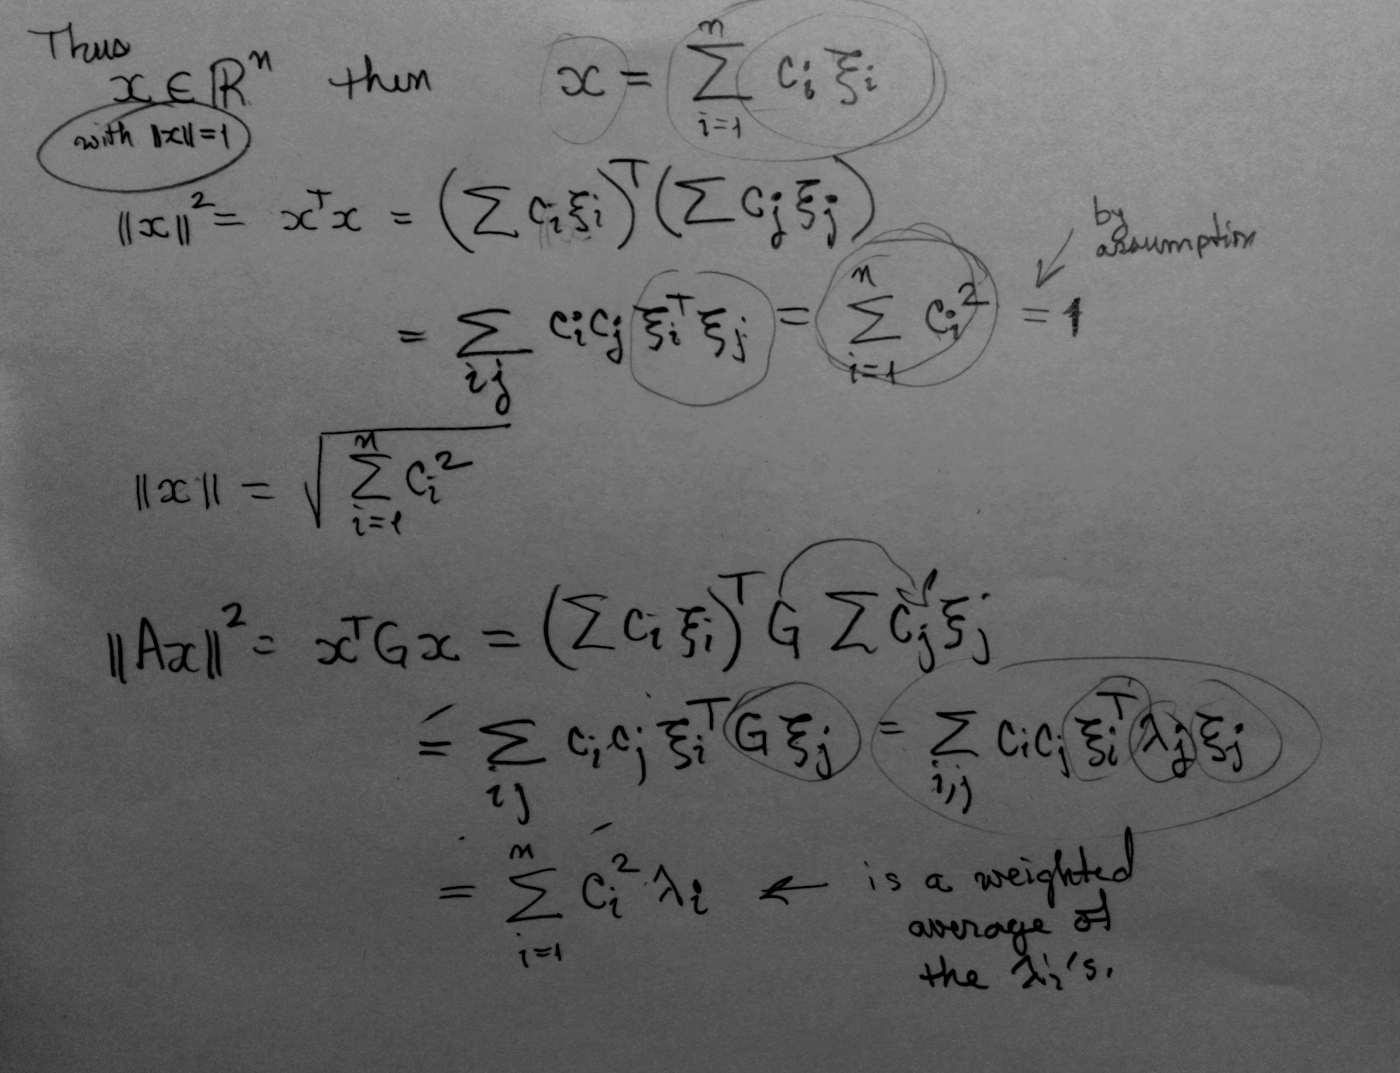 Thus
x ∈ ℝⁿ then x = ∑ᵢ₌₁ⁿ cᵢ ξᵢ
with ||x||=1
||x||² = xᵀx = (∑ cᵢ ξᵢ)ᵀ (∑ cⱼ ξⱼ)
by
assumption
= ∑ᵢⱼ cᵢ cⱼ ξᵢᵀ ξⱼ = ∑ᵢ₌₁ⁿ cᵢ² = 1
||x|| = √(∑ᵢ₌₁ⁿ cᵢ²)
||Ax||² = xᵀGx = (∑ cᵢ ξᵢ)ᵀ G ∑ cⱼ ξⱼ
= ∑ᵢⱼ cᵢ cⱼ ξᵢᵀ G ξⱼ = ∑ᵢ,ⱼ cᵢ cⱼ ξᵢᵀ λⱼ ξⱼ
= ∑ᵢ₌₁ⁿ cᵢ² λᵢ ← is a weighted
average of
the λᵢ's.